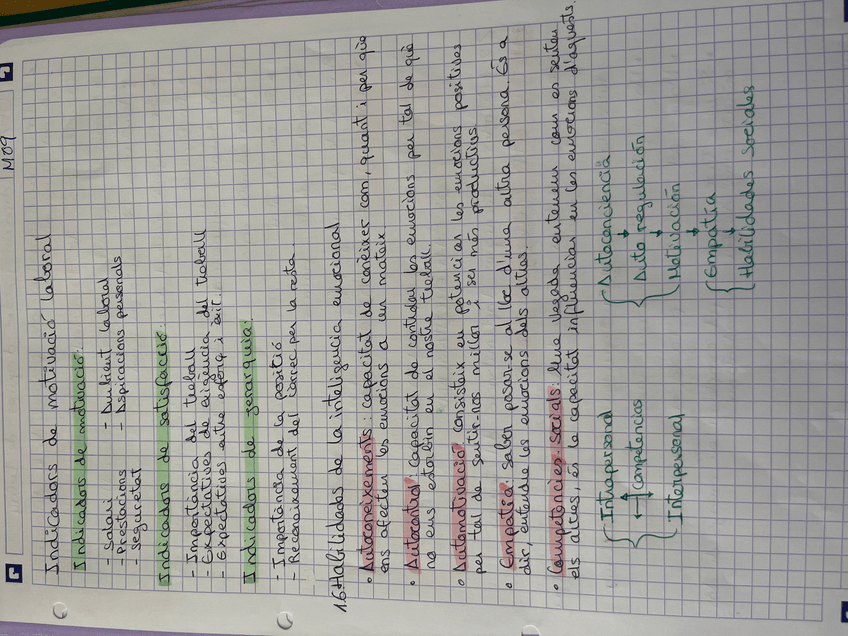 M09
Indicadors de motivació laboral
Indicadors de motivació:
- Salari - Ambient laboral
- Prestacions - Aspiracions personals
- Seguretat
Indicadors de satisfacció:
- Importància del treball
- Expectatives de exigència del treball
- Expectatives entre esforç i èxit.
Indicadors de jerarquia:
- Importància de la posició
- Reconeixement del càrrec per la resta.
1.6 Habilidades de la inteligencia emocional
• Autoconeixements: capacitat de conèixer com, quant i per què
ens afecten les emocions a un mateix
• Autocontrol: capacitat de controlar les emocions per tal de què
no ens estorbin en el nostre treball.
• Automotivació: consisteix en potenciar les emocions positives
per tal de sentir-nos millor i ser més productius
• Empatia: saber posar-se al lloc d'una altra persona. És a
dir, entendre les emocions dels altres.
• Competències socials: una vegada entenem com es senten
els altres, és la capacitat influenciar en les emocions d'aquests.
Intrapersonal
Competencias
Interpersonal
Autoconciencia
Auto regulación
Motivación
Empatía
Habilidades sociales